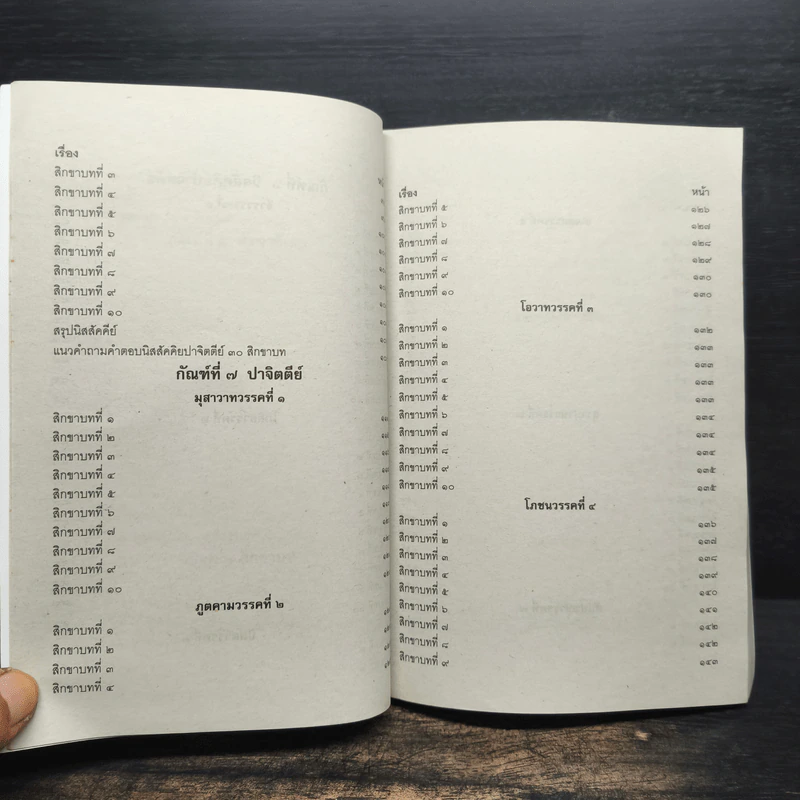 เรื่อง
สิกขาบทที่ ๓
สิกขาบทที่ ๔
สิกขาบทที่ ๕
สิกขาบทที่ ๖
สิกขาบทที่ ๗
สิกขาบทที่ ๘
สิกขาบทที่ ๙
สิกขาบทที่ ๑๐
สรุปนิสสัคคีย์
แนวคำถามคำตอบนิสสัคคิยปาจิตตีย์ ๓๐ สิกขาบท
กัณฑ์ที่ ๗ ปาจิตตีย์
มุสาวาทวรรคที่ ๑
สิกขาบทที่ ๑
สิกขาบทที่ ๒
สิกขาบทที่ ๓
สิกขาบทที่ ๔
สิกขาบทที่ ๕
สิกขาบทที่ ๖
สิกขาบทที่ ๗
สิกขาบทที่ ๘
สิกขาบทที่ ๙
สิกขาบทที่ ๑๐
ภูตคามวรรคที่ ๒
สิกขาบทที่ ๑
สิกขาบทที่ ๒
สิกขาบทที่ ๓
สิกขาบทที่ ๔
เรื่อง หน้า
สิกขาบทที่ ๕ ๑๒๖
สิกขาบทที่ ๖ ๑๒๗
สิกขาบทที่ ๗ ๑๒๘
สิกขาบทที่ ๘ ๑๒๙
สิกขาบทที่ ๙ ๑๓๐
สิกขาบทที่ ๑๐ ๑๓๐
โอวาทวรรคที่ ๓
สิกขาบทที่ ๑ ๑๓๒
สิกขาบทที่ ๒ ๑๓๓
สิกขาบทที่ ๓ ๑๓๓
สิกขาบทที่ ๔ ๑๓๓
สิกขาบทที่ ๕ ๑๓๓
สิกขาบทที่ ๖ ๑๓๔
สิกขาบทที่ ๗ ๑๓๔
สิกขาบทที่ ๘ ๑๓๔
สิกขาบทที่ ๙ ๑๓๕
สิกขาบทที่ ๑๐ ๑๓๕
โภชนวรรคที่ ๔
สิกขาบทที่ ๑ ๑๓๖
สิกขาบทที่ ๒ ๑๓๗
สิกขาบทที่ ๓ ๑๓๘
สิกขาบทที่ ๔ ๑๓๙
สิกขาบทที่ ๕ ๑๔๐
สิกขาบทที่ ๖ ๑๔๑
สิกขาบทที่ ๗ ๑๔๒
สิกขาบทที่ ๘ ๑๔๒
สิกขาบทที่ ๙ ๑๔๓